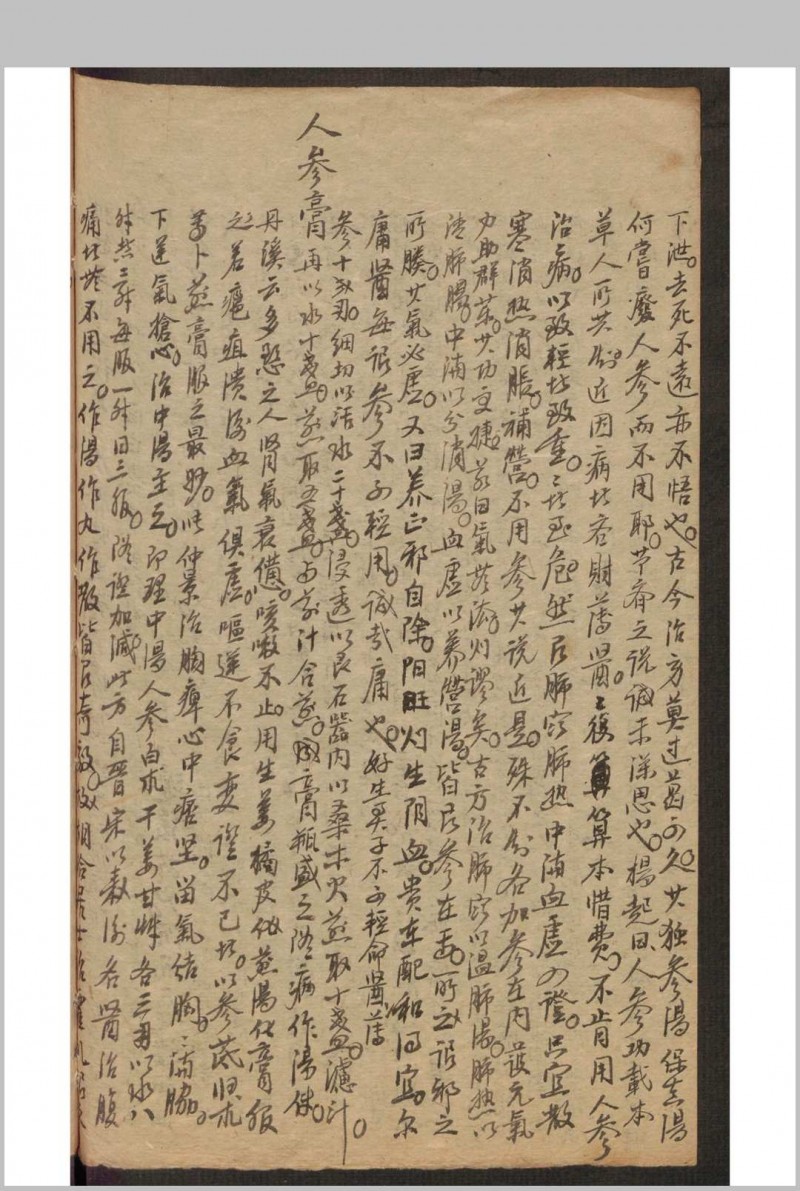 下泄去死不遠亦不悟也古今治方莫过为其独参湯保真湯
何嘗廢人参而不用耶节斋之说诚未深思也楊起曰人参功載本
草人所共知近因病者吝財薄醫醫復算本惜費不肯用人参
治病以致輕者致重重者至危然有肺寒肺热中滿血虚之證只宜散
寒消热消脹補營不用参其说近是殊不知各加参在内護元氣
力助群薬其功更捷若曰氣无補法则謬矣古方治肺寒以温肺湯肺热以
清肺湯中滿以分消湯血虚以養營湯皆有参在矣所谓邪之
所腠其氣必虚又曰养正邪自除阳旺则生阴血贵在配和得宜尔
庸醫每谓参不可輕用诚哉庸也好生君子不可輕命薄醫
人参膏
参十两細切以活水二十盏浸透以艮石器内以桑木火煎取十盏濾汁
再以水十盏煎取五盏与前汁合煎成膏瓶盛之随病作湯使
丹溪云多慾之人肾氣衰憊咳嗽不止用生姜橘皮煎湯化膏服
之若癰疽潰後血氣俱虚嘔逆不食变證不已者以参芪归术
等煎膏服之最妙仲景治胸痺心中痞坚留氣结胸胸滿脇
下逆氣搶心治中湯主之即理中湯人参白术干姜甘艸各三两以水八
升煮三升每服一升日三服随證加减此方自晋宋以来後名醫治腹
痛者无不用之作湯作丸作散皆有奇效